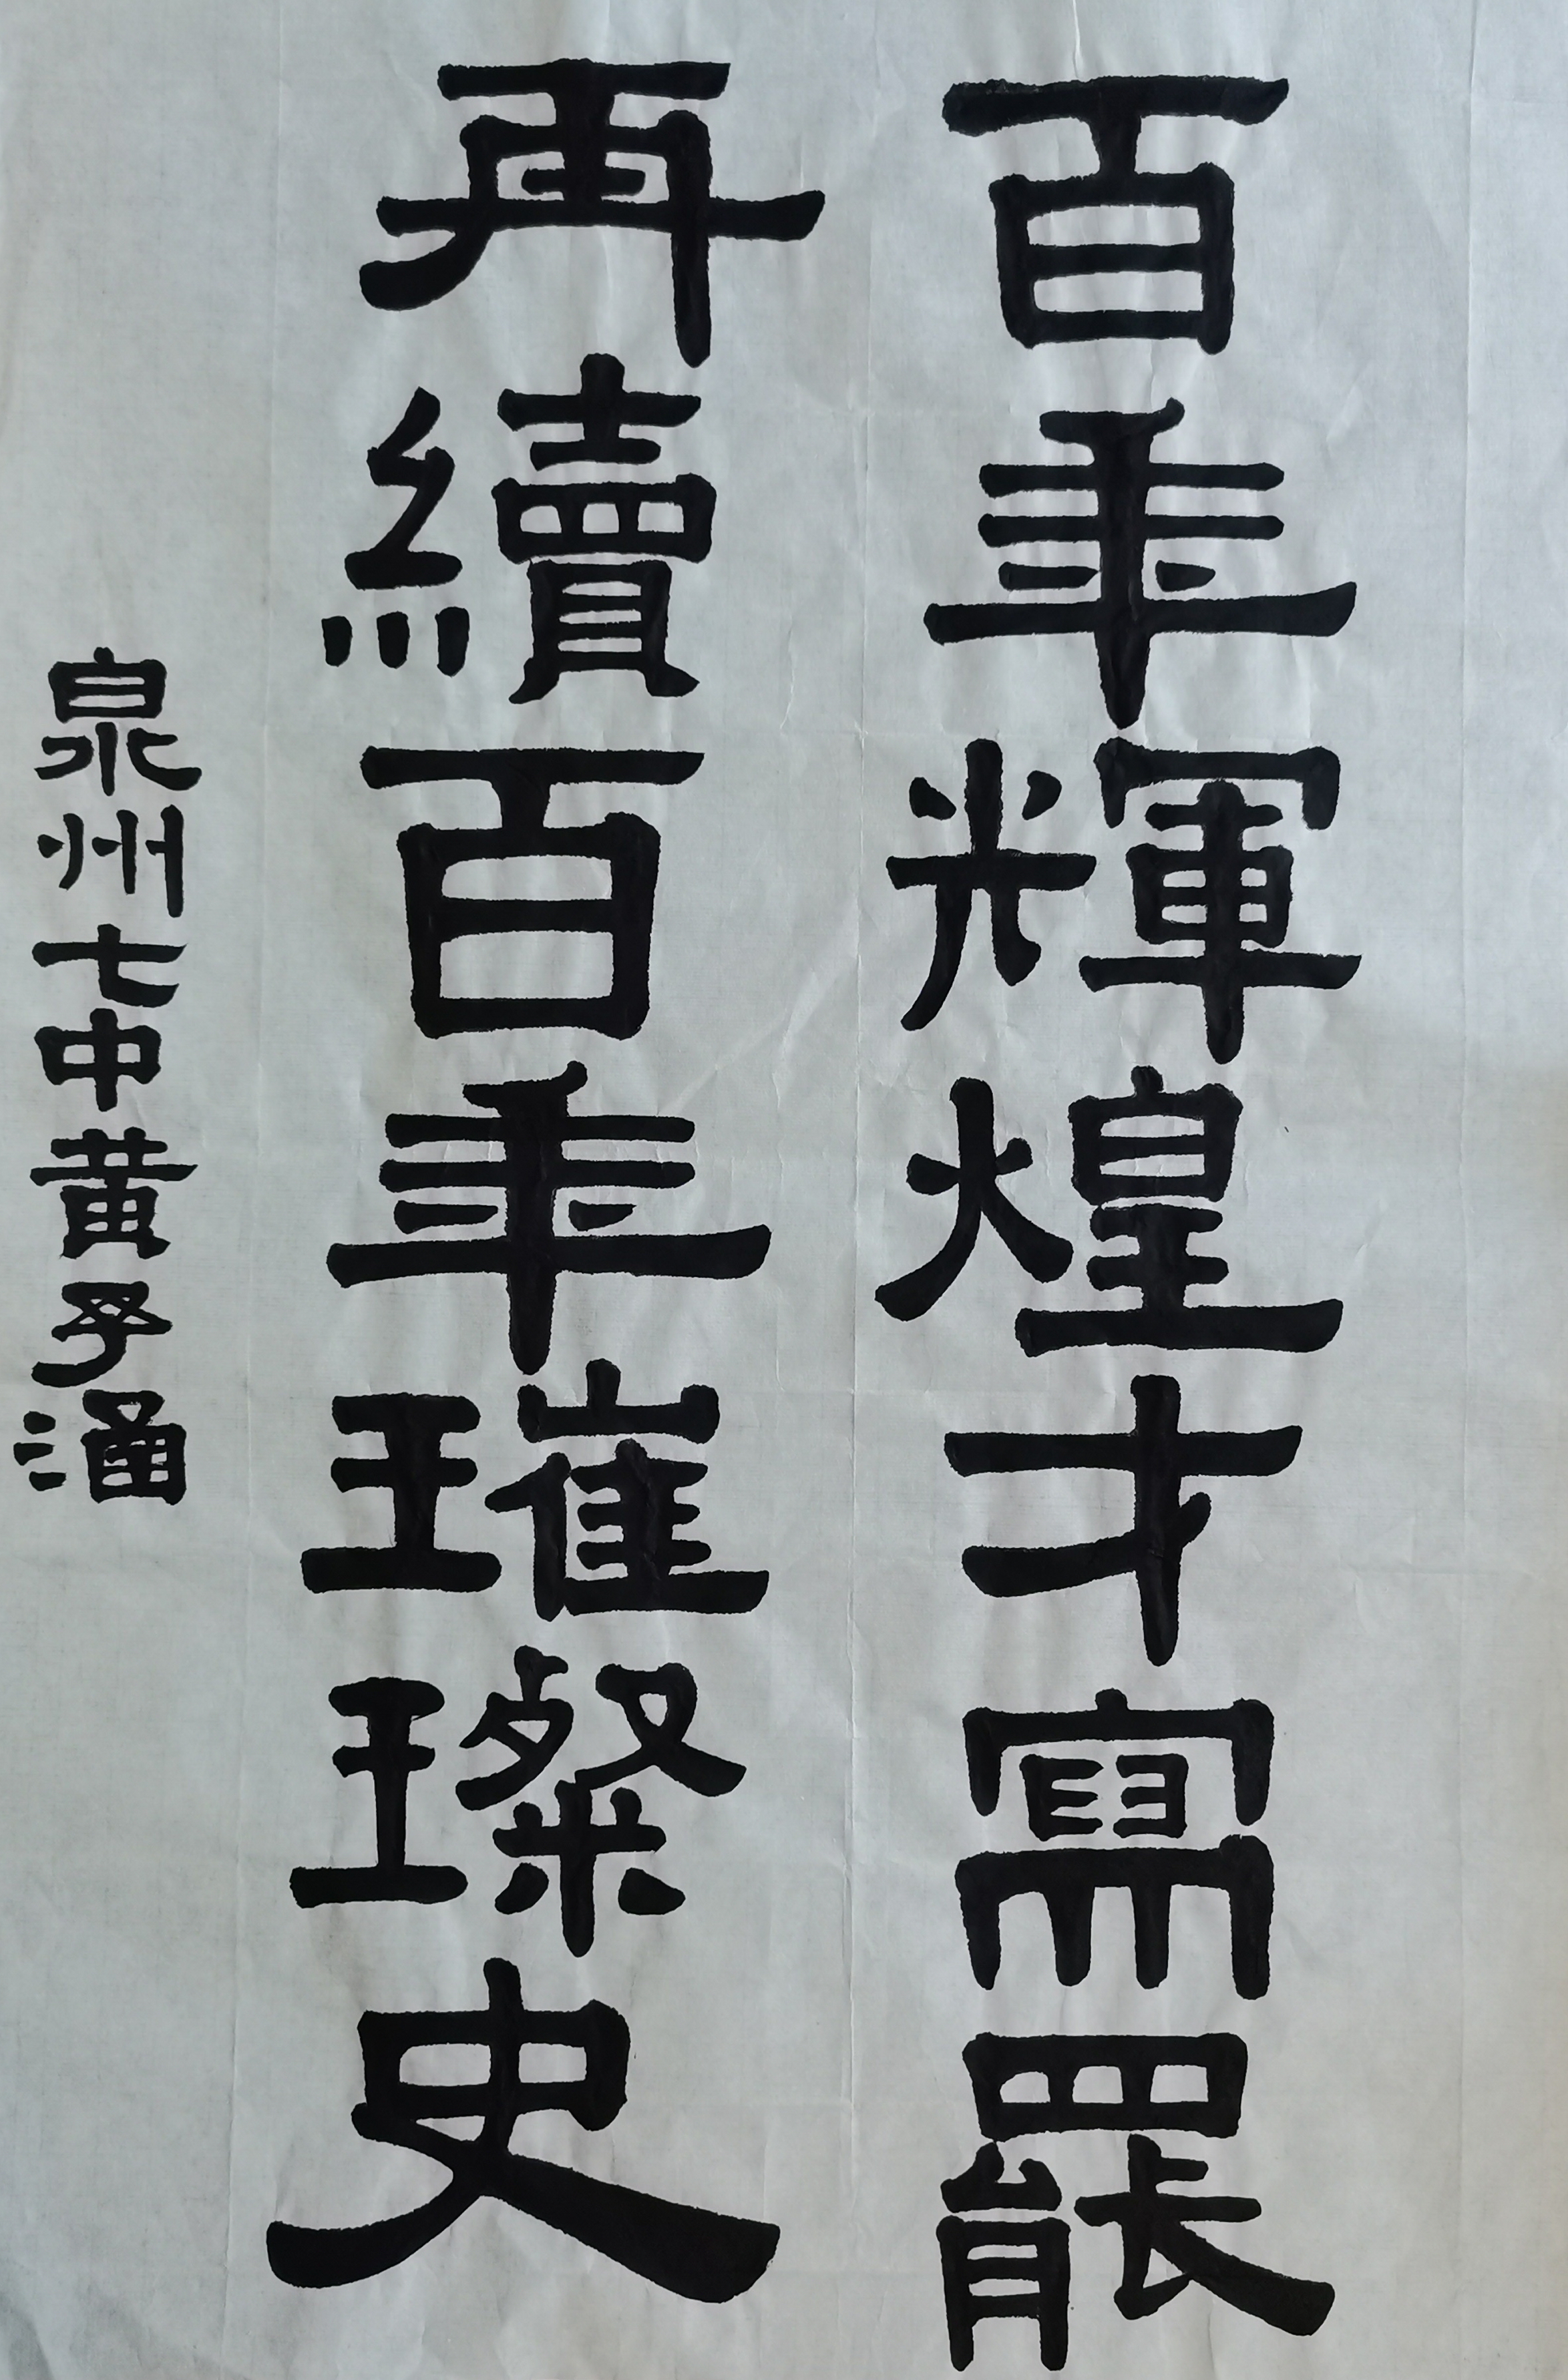 百年輝煌才寫罷
再續百年璀璨史
泉州七中黄子涵